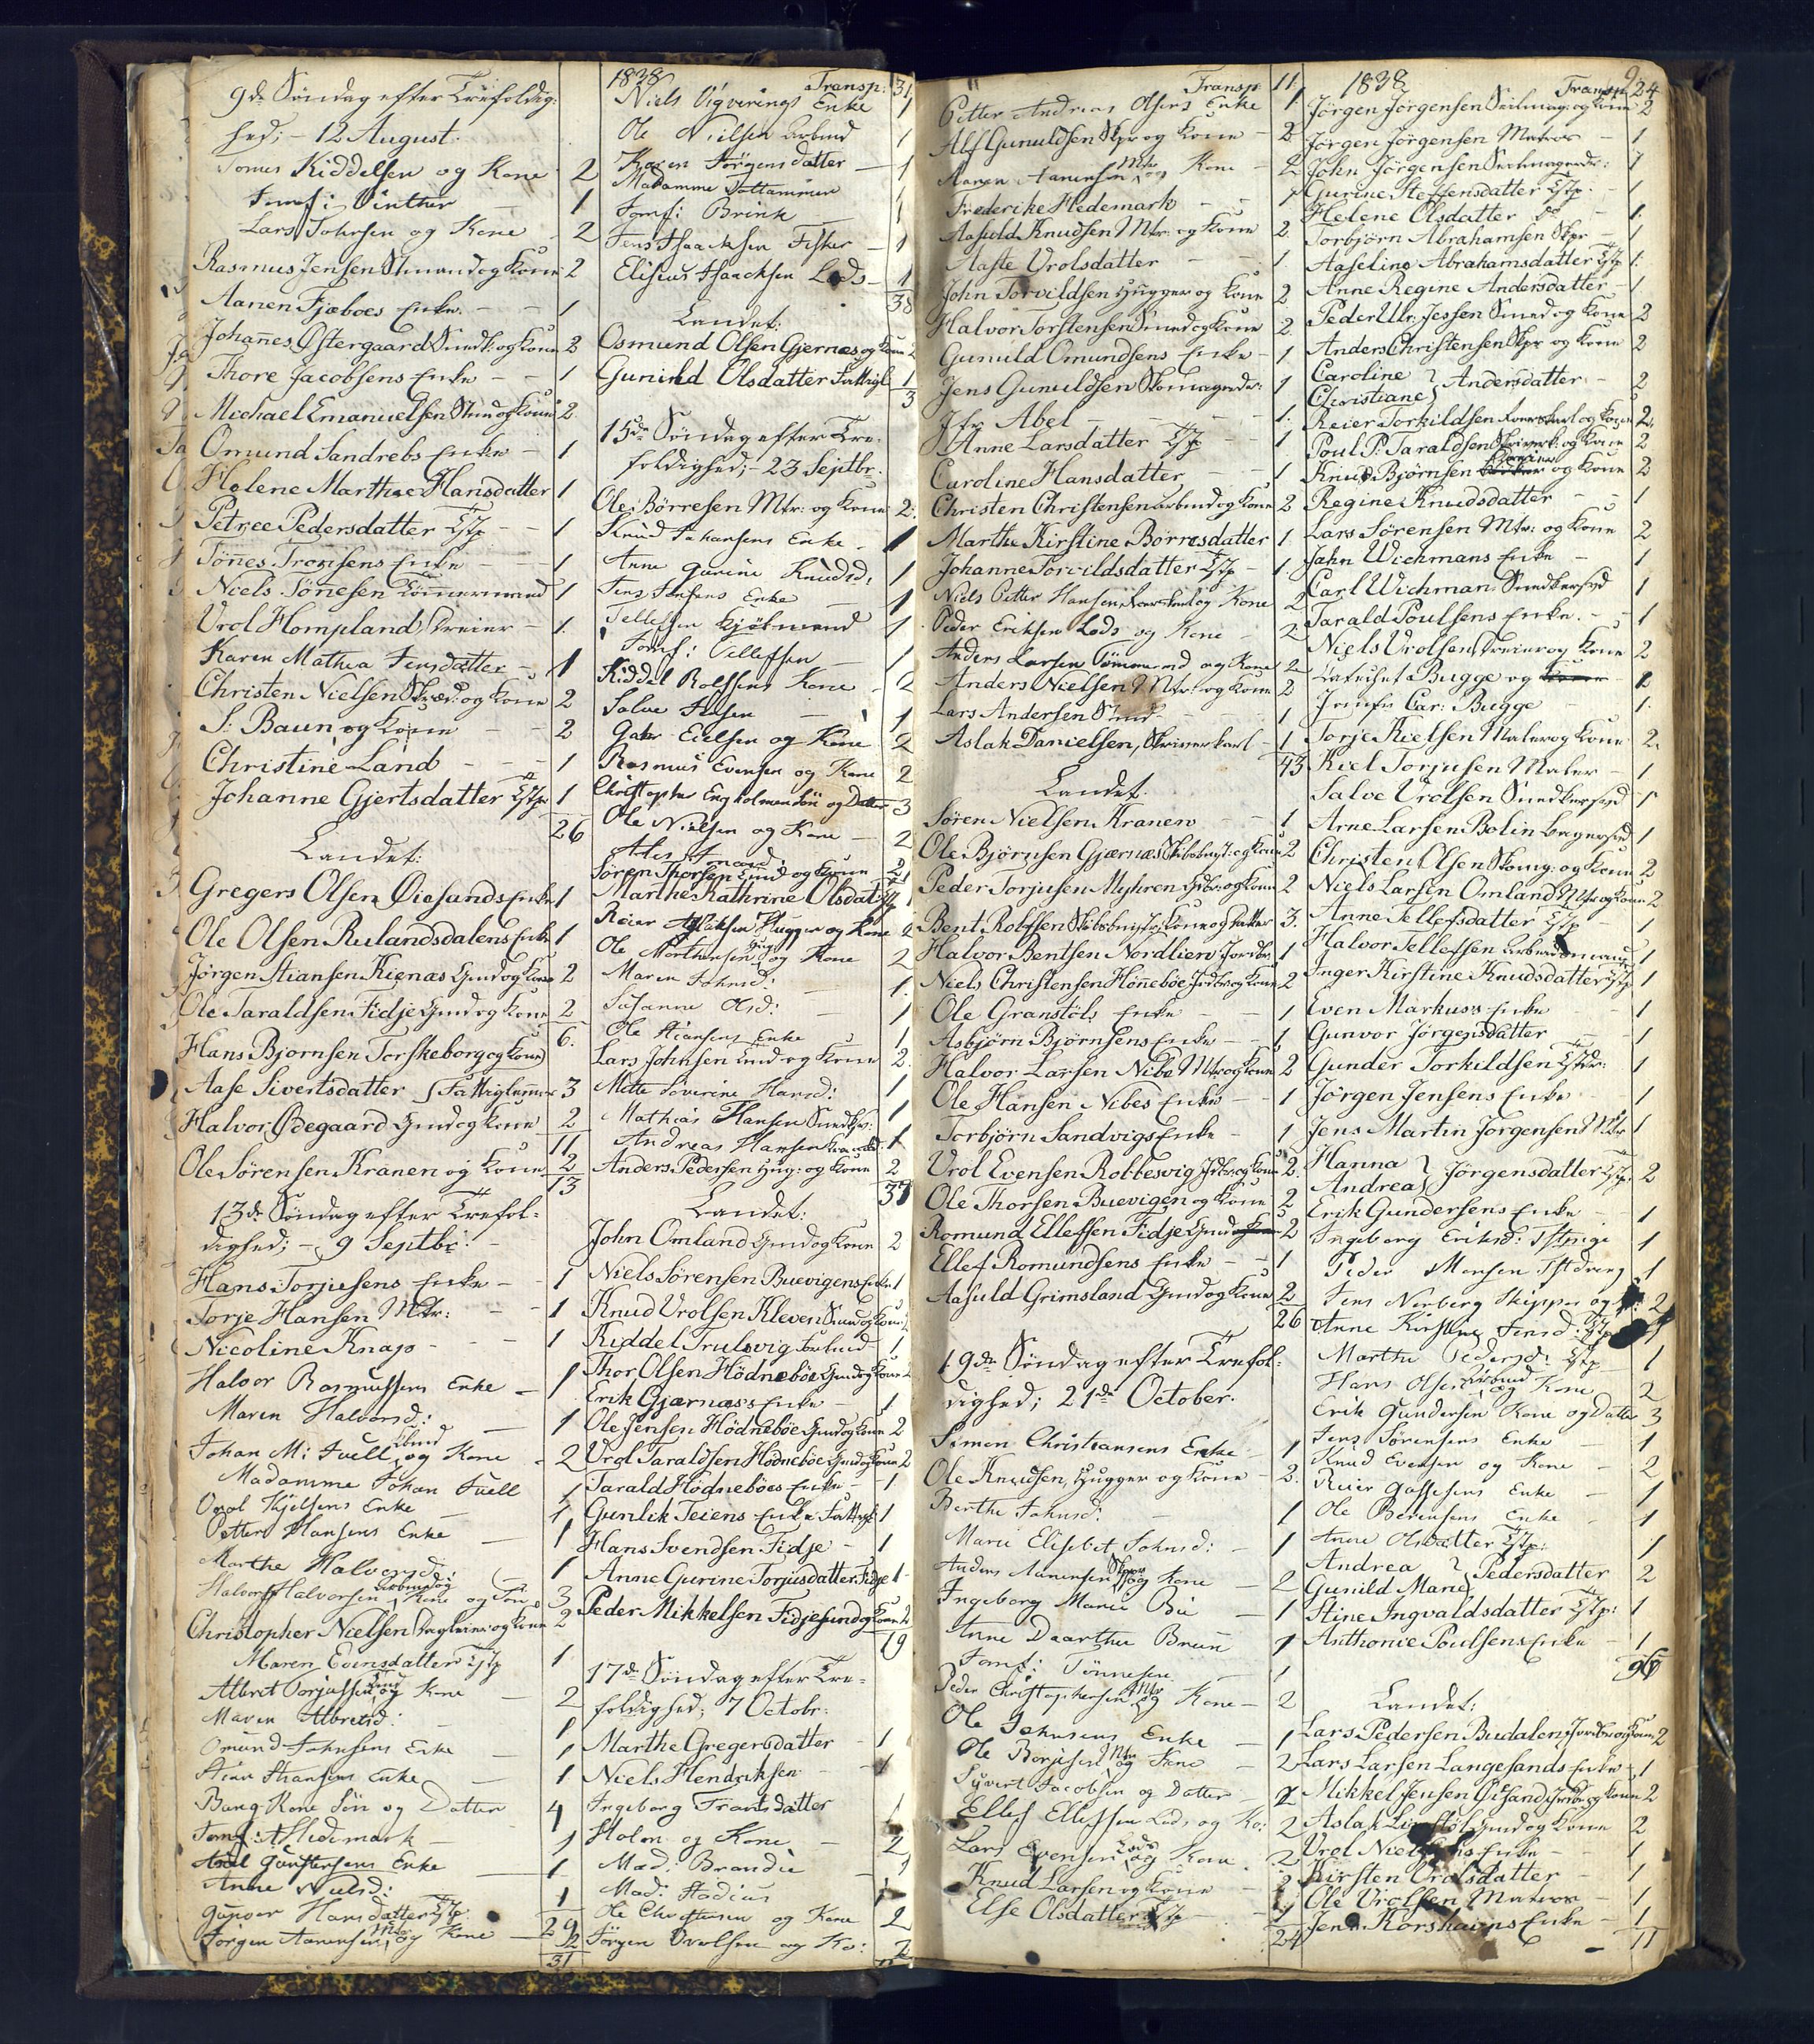 9de Söndag efter Trefoldig:
hed; - 12 August.
Tomes Kiddelsen og Kone 2
Jomf: Vinther - 1
Lars Johnsen og Kone 2
Rasmus Jensen Stmand og Kone 2
Aanen Fjæboes Enke - - 1
Johannes Østergaard Smedk: og Kone 2
Thore Jacobsens Enke - - 1
Michael Emanuelsen og Kone 2
Omund Sandrebs Enke - 1
Helene Marthee Hansdatter 1
Petree Pedersdatter Tjtp - - 1
Tönes Tronsens Enke - - 1
Niels Tönesen Tömermand 1
Vrol Hompland, Dreier - 1.
Karen Mathea Jensdatter - 1
Christen Nielsen Skræd: og Kone 2
S: Baun og Kone - - 2
Christine Land - - - 1
Johanne Gjertsdatter Tjtp 1
26
Landet:
Gregers Olsen Øiesands Enke 1
Ole Olsen Rulandsdalens Enke 1
Jørgen Stiansen Kienæs Gmd og Kone 2
Ole Taraldsen Fidje Gmd og Kone 2
6.
Hans Bjornsen Torskeborg og Kone
Aase Sivertsdatter Fattiglemmer 3
Halvor Ødegaard Gmd og Kone 2
11
Ole Sørensen Kranen og Kone 2
13
13de Söndag efter Trefol-
dighed; - 9 Septbr: -
Hans Torjusens Enke - 1
Torje Hansen Mtr: - - 1
Nicoline Knap - - - 1
Halvor Rasmussens Enke - 1
Maren Halvorsd: - 1
Johan M: Juell og Kone - 2
Madamme Johan Juell 1
Vrol Kjelsens Enke - 1
Petter Hansens Enke - 1
Marthe Halvorsd: - 1
Halvor Halvorsen Kone og Sön 3
Christopher Nielsen Dagleier og Kone 2
Maren Evensdatter Tjtp 1
Albret Torjussen og Kone - 2
Maren Albretsd: - 1
Omund Johnsens Enke - 1
Stian Stiansens Enke - 1
Bang Kone Sön og Datter 4
Jomf: A Hedemark - 1
Gunstensens Enke - 1
Anne Nielsd: - 1
Gunvor Hansdatter Tjtp 29
Jörgen Aanensen Mtr og Kone - 2
31
1838
Transp: 31
Niels Vigverings Enke 1
Ole Nielsen Arbmd 1
Karen Jörgensdatter - 1
Madamme Tottammen 1
Jomf: Brink - 1
Jens Isaacksen Fisker - 1
Elisius Isaacksen Lods - 1
38
Landet:
Osmund Olsen Gjernæs og Kone 2
Gunild Olsdatter Fattigl 1
3
15de Söndag efter Tre-
foldighed; - 23 Septbr:
Ole Börresen Mtr: og Kone 2.
Knud Johansens Enke - 1
Anne Gurine Knudsd: 1
Jens Jensens Enke - 1
Tellefsen Kjöbmand 1
Jomf: Tellefsen - 1
Kiddel Rolfsens Kone - 2
Salve Jensen - 1
Gabr Eielsen og Kone 2
Rasmus Evensen og Kone 2
Christopher Engholmen Sön og Datter 3
Ole Nielsen og Kone - 2
Søren Thorsen Smd og Kone 2
Marthe Kathrine Olsdat: Tjtp 1
Reier Aslaksen Hugger og Kone 2
Ole Mortensen Hug og Kone 2
Maren Johnsd: - 1.
Susanne Olsd: - 1
Ole Stiansens Enke 1
Lars Johnsen Smd og Kone 2.
Mette Severine Hansd: 1
Mathias Hansen Snedksv: 1
Andreas Hansen 1
Anders Pedersen Hug: og Kone 2
37
Landet:
John Omland Gmd og Kone 2
Niels Sörensen Buevigens Enke 1
Knud Vrolsen Kleven Smd og Kone 2
Kiddel Trulsvig Arbmd - 1
Thor Olsen Hödneböe Gmd og Kone 2
Erik Gjærnæss Enke - 1
Ole Jensen Hödneböe Gmd og Kone 2
Vrol Taraldsen Hödneböe Gmd og Kone 2
Tarald Hödneböes Enke - 1
Gunlik Teiens Enke Fattigl: 1
Hans Svendsen Fidje - 1
Anne Gurine Torjusdatter Fidje 1
Peder Mikkelsen Fidje Gmd og Kone 2
19
17de Söndag efter Tre-
foldighed; 7 Octobr:
Marthe Gregersdatter - 1
Niels Hendriksen - - 1
Ingeborg Frantsdatter 1
Holm og Kone - 2
Mad: Brandie 1
Mad: Stadius 1
Ole Christensen og Kone 2
Jörgen Vrolsen og Ko: 2
11
Transp 11
Petter Andreas Olsens Enke 1
Alf Gunuldsen Skpr og Kone - 2
Aanen Aanensen Mtr og Kone - 2
Frederike Hedemark - - 1
Aasuld Knudsen Mtr: og Kone 2.
Aaste Vrolsdatter - - 1
John Torvildsen Hugger og Kone 2
Halvor Torstensen Smed og Kone 2.
Gunuld Omundsens Enke - 1
Jens Gunuldsen Skomagerdr: 1
Jfr Abel - - - 1.
Anne Larsdatter Tjtp - 1
Caroline Hansdatter - 1
Christen Christensen Arbmd og Kone 2
Marthe Kirstine Börresdatter 1.
Johanne Torvildsdatter Tjtp - 1.
Niels Petter Hansen og Kone 2
Peder Eriksen Lods og Kone - 2
Anders Larsen Tömmermd og Kone 2
Anders Nielsen Mtr: og Kone 2
Lars Andersen Smd - - 1
Aslak Danielsen, Skriverkarl - 1
43
Landet:
Søren Nielsen Kranen - - 1
Ole Björnsen Gjærnæs Skibsbmst: og Kone 2
Peder Torjusen Myhren Gdbr: og Kone 2
Bent Rolfsen Skibsbmstr, Kone og Datter 3.
Halvor Bentsen Nordlien Jordbr: 1
Niels Christensen Hönnebö Jrdbr: og Kone 2
Ole Granstöls Enke - - 1
Asbjørn Björnsens Enke - - 1
Halvor Larsen Nibe Mtr og Kone 2
Ole Hansen Nibes Enke - - 1
Torbjörn Sandvigs Enke - 1
Vrol Evensen Robbesvig Jrdbr: og Kone 2.
Ole Thorsen Buevigen og Kone 2
Romund Ellefsen Fidje Gmd og Kone 2
Ellef Romundsens Enke - - 1
Aasuld Grimsland Gmd og Kone 2
26
19de Söndag efter Trefol-
dighed; 21de October.
Simon Christiansens Enke - 1
Ole Knudsen, Hugger og Kone - 2.
Berthe Johnsd: - 1
Marie Elisebet Johnsd: - 1
Anders Aanensen Skpr og Kone - 2
Ingeborg Marie Bie - 1
Anne Daarthe Bruun 1
Jomf: Tönnesen - 1
Peder Christophersen Mtr og Kone - 2
Ole Johnsens Enke - 1
Ole Börjesen Mtr og Kone - 2
Syvert Jacobsen og Datter - 2
Ellef Ellefsen Lods og Ko: 2
Lars Evensen Lods og Kone 2
Knud Larsen og Kone - 2
Else Olsdatter Tjtp - 1
24
1838
9.
Transp 24
Jörgen Jörgensen Seilmag: og Kone 2
Jörgen Jörgensen Matros - 1
John Jörgensen Seilmagerdr: 1
Gurine Steffensdatter Tjtp: - 1
Helene Olsdatter do - 1.
Torbjörn Abrahamsen Skpr - 1
Aaseline Abrahamsdatter Tjtp 1.
Anne Regine Andersdatter - 1
Peder Ulr: Jessen Smed og Kone 2
Anders Christensen Skpr og Kone 2
Caroline } Andersdatter - 2
Christiane
Reier Torkildsen og Kone 2.
Poul P: Taraldsen Skriverk: og Kone 2
Knud Björnsen Dreier og Kone 2
Regine Knudsdatter - - 1
Lars Sörensen Mtr: og Kone 2
Jahn Wichmans Enke - 1
Carl Wichman Snedkersvd 1
Tarald Poulsens Enke. - - 1
Niels Vrolsen, Dreier og Kone 2
Bugge og Kone - 1
Jomfr Car: Bugge - 1.
Torje Kielsen Maler og Kone 2.
Kiel Torjusen Maler - 1
Salve Vrolsen Snedkersvd 1
Arne Larsen Bolin Bagersvd 1
Christen Olsen Skomg: og Kone 2
Niels Larsen Omland Mtr og Kone 2
Anne Tellefsdatter Tjtp 1
Halvor Tellefsen Arbeidsmand 1
Inger Kirstine Knudsdatter Tjtp 1
Even Markuss Enke 1
Gunvor Jörgensdatter - 1
Gunder Torkildsen Tjdr: 1
Jörgen Jensens Enke 1
Jens Martin Jörgensen Mtr 1
Hanna } Jörgensdatter Tjtp: 2
Andrea
Erik Gundersens Enke - 1
Ingeborg Eriksd: Tjstpige 1
Peder Monsen Tjstdreng 1
Jens Norberg Skipper og K: 2
Anne Kirstine Jensd: Tjtp 1
Marthe Pedersd: Tjtp 1
Hans Olsen Arbmd og Kone 2
Erik Gundersen Kone og Datter 3
Jens Sörensens Enke - 1
Knud Evensen og Kone - 2
Reier Gassesens Enke - 1
Ole Berensens Enke - 1
Anne Olsdatter Tjtp: 1
Andrea } Pedersdatter 2
Gunild Marie
Stine Ingvaldsdatter Tjtp: 1
Anthonie Poulsens Enke - 1
96
Landet:
Lars Pedersen Budalen, Jordbr og Kone 2
Lars Larsen Langesands Enke - 1
Mikkel Jensen Øisand, Jrdbr og Kone 2
Aslak Gmd og Kone 2
Vrol Enke - 1
Kirsten Vrolsdatter - 1
Ole Vrolsen Matros - 1
Jens Korshavns Enke - 1
11